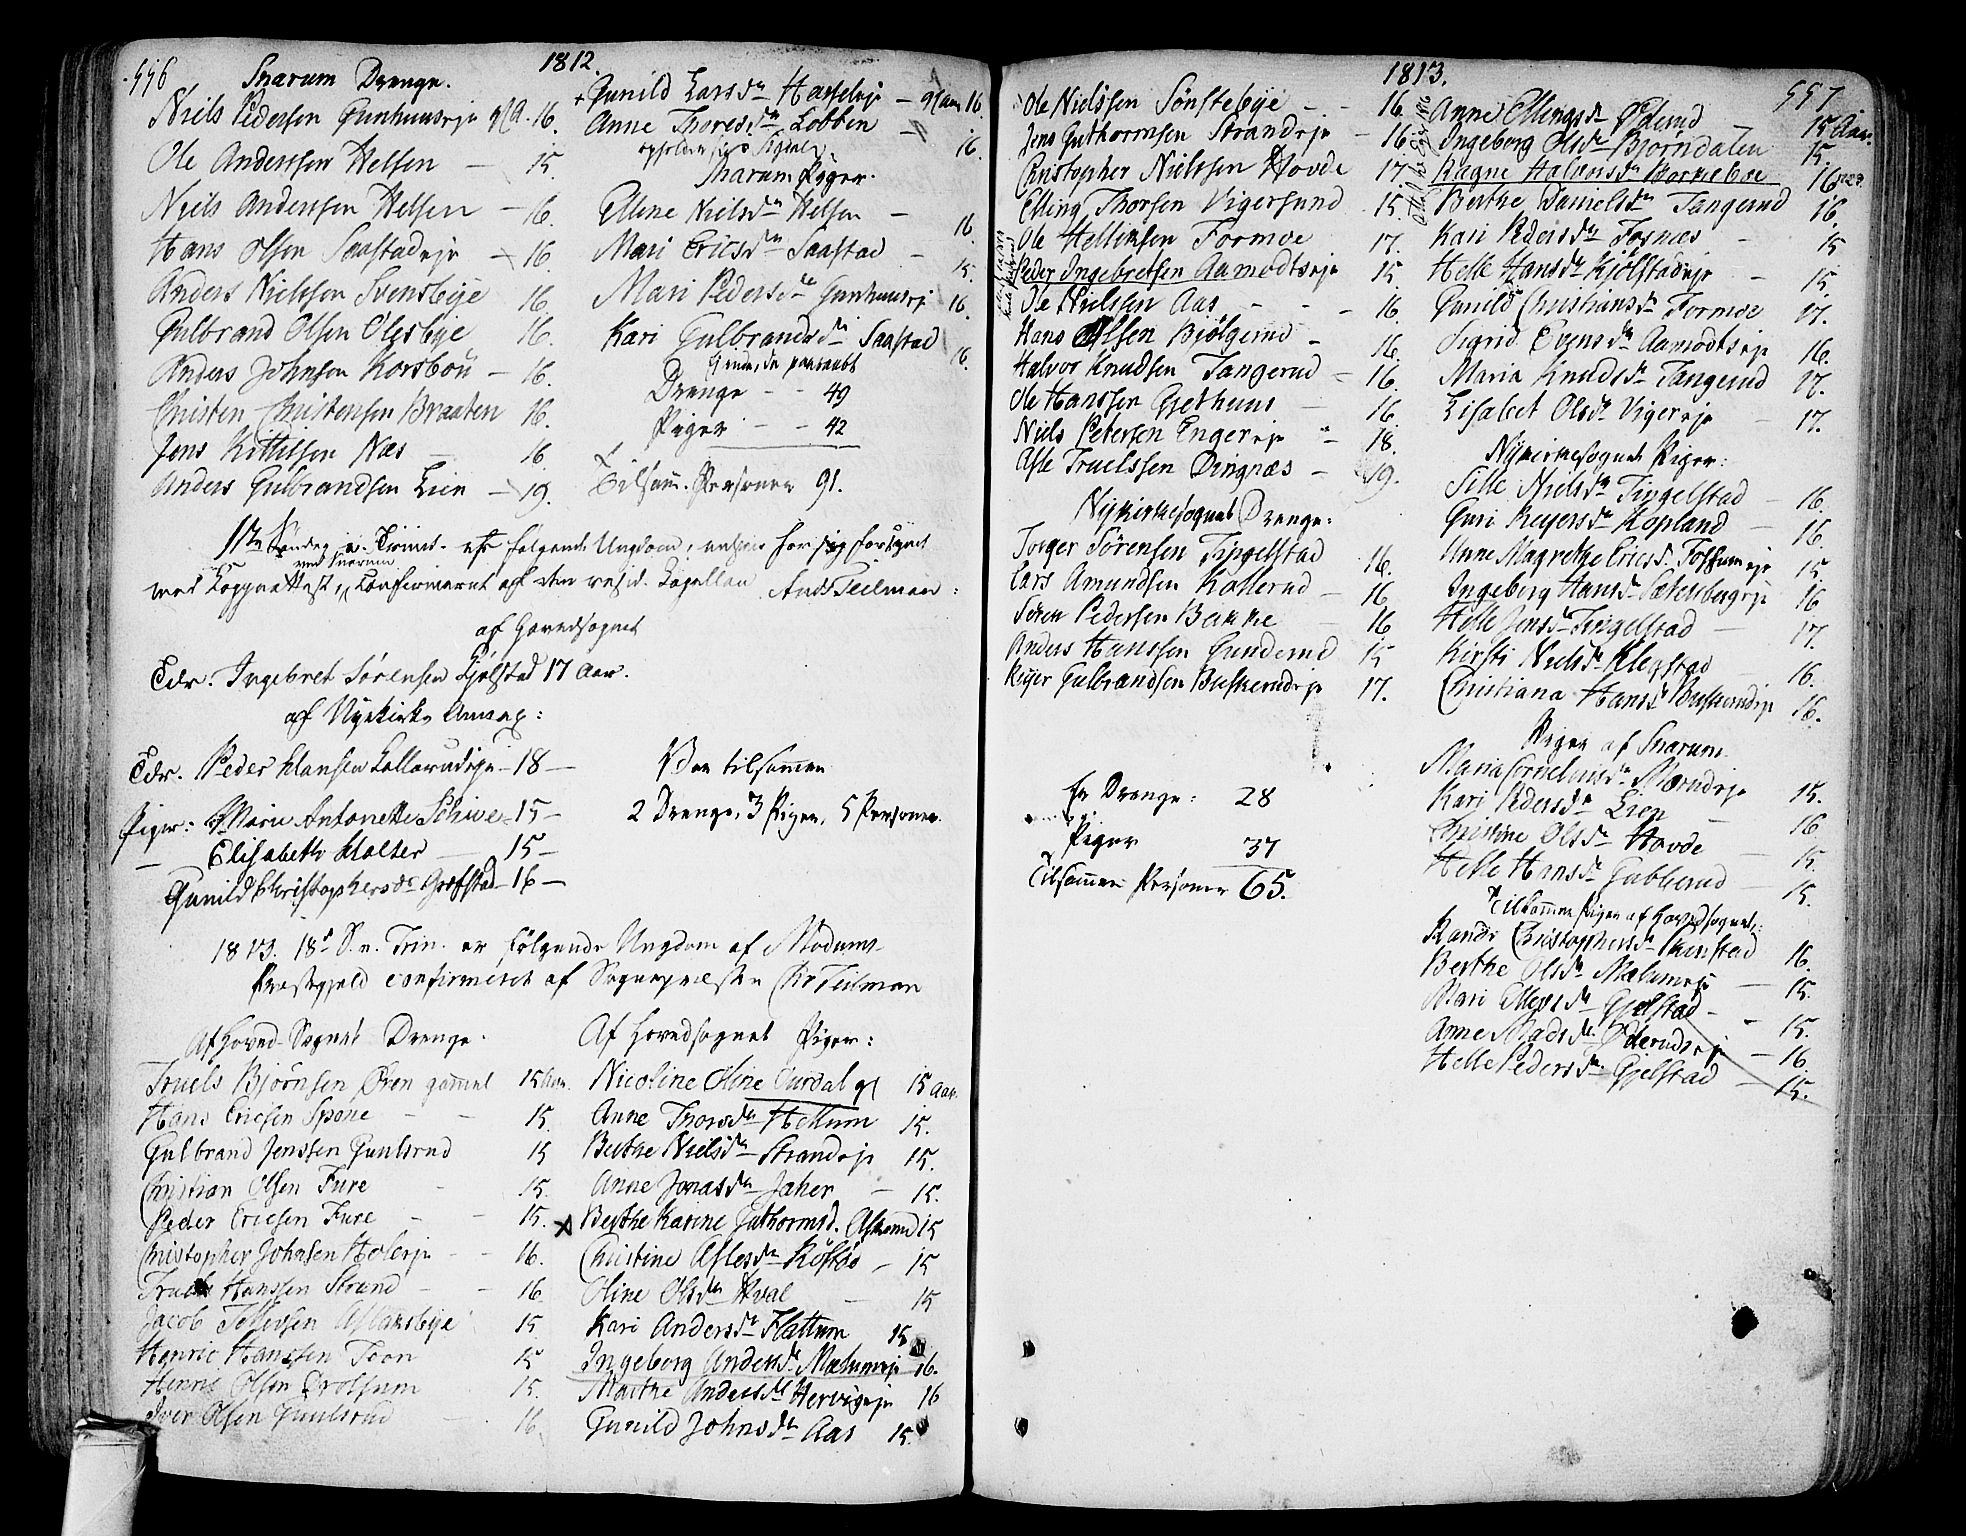 556
1812.
Snarum Drenge.
Niels Pedersen Gunhuuseje 16.
Ole Anderssen Helsen — 15.
Niels Anderssen Helsen — 16.
Hans Olsen Saastadeje — 16.
Anders Nielsen Svensbye 16.
Gulbrand Olsen Olesbye 16.
Anders Johnsen Korsbøn — 16.
Christen Christensen Braaten 16.
Jens Kittelsen Næs — 16.
Anders Gulbrandsen Lien — 19.
Gunild Larsdr Hasseleje — 16.
Anne Thoresdr Lobben — 16.
Snarum Piger.
Ellene Nielsdr Helsen — 16.
Mari Ericsdr Saastad — 15.
Mari Pedersdr Gunhuusej 16.
Kari Gulbrandsdr Saastad 16.
Drenge — — 49
Piger — — 42
Tilsam. Personer 91.
følgende Ungdom
med Koppeattest, confirmeret af den resid. Capellan Ands Teilman:
af Hovedsognet
Ingebret Sørensen Kjølstad 17 Aar.
af Nykirke Annex:
Peder Hansen Kallerudeje — 18 —
Piger: Marie Antonette Schive — 15 —
— Elisabeth Holter — 15 —
Gunild Christophersdr Grefstad — 16 —
Var tilsammen
2 Drenge, 3 Piger, 5 Personer.
1813. 18de S. e. Trin. er følgende Ungdom af Modums
Præstegjeld confirmeret af Sognepræsten Chr Teilman
Af Hoved-Sognet Drenge.
Truels Bjørnsen Øren gammel 15 Aar.
Hans Ericsen Spone — — 15.
Gulbrand Jenssen Guulsrud 15
Christian Olsen Fure — 15.
Peder Ericsen Fure — — 15.
Christopher Johnsen Holeeje — — 16.
Truels Hanssen Strand — — 16.
Jacob Tollevsen Aslaksbye 15.
Henric Hanssen Toon 15
Henric Olsen Drolsum 15.
Iver Olsen Guulsrud — 16.
Af Hovedsognet Piger:
Nicoline Oline Aurdal 15 Aar.
Anne Thorsdr Hellum 15.
Berthe Nielsdr Strandeje 15.
Anne Jonasdr Jaher — 15.
x Berthe Karine Guthormsd. Askerud 15
Christine Aslesdr Kostøe — 15
Oline Olsdr Hval — 15
Kari Andersdr Flattum 15
Ingeborg Andersdr Mælumeje 16.
Marthe Andersdr Hervigeje 16
Gunild Johnsdr Aas 15.
1813.
557
Ole Nielssen Sønstebye — — 16.
Jens Guthormsen Strandeje — 16
Christopher Nielssen Hovde 17
Elling Thorsen Vigersund 15
Ole Helliksen Formoe 17.
Peder Ingebretsen Aamodtseje 15
Ole Nielssen Aas — — — 16.
Hans Olsen Bjølgerud — 16.
Halvor Knudsen Tangerud — 16.
Ole Hanssen Grethuus — 16
Niels Petersen Engereje — 18.
Asle Truelssen Dingnæs — 19.
Nykirkesognet Drenge:
Torger Sørensen Tingelstad 16.
Lars Amundsen Kallerud — 16
Søren Pedersen Bakke 16
Anders Hanssen Gunderud 15
Reyer Gulbrandsen Buskerudeje 17.
er Drenge: 28
Piger 37
Tilsammen Personer 65.
Anne Ellingsdr Øderud — 15 Aar.
Ingeborg Olsdr Bjørndalen 15.
Ragne Halvorsdr Borkebøe 16
Berthe Danielsdr Tangerud 16.
Kari Pedersdr Fosnæs — 15
Helle Hansdr Kjølstadeje — 15
Gunild Christiansdr Formoe 17.
Sigrid Evensdr Aamodtseje 16.
Maria Knudsdr Tangerud 17.
Lisabet Olsdr Vigereje — 17.
Nykirkesognet Piger:
Sille Nielsdr Tingelstad — 16.
Guri Reyersdr Kopland — 16
Anne Magrethe Ericsd. Fossumeje 15
Ingeborg Hansdr Sætersbergeje 16
Helle Jensdr Tingelstad — 17.
Kirsti Nielsdr Klegstad 16.
Christiana Hansdr Buskerudeje 16.
Piger af Snarum
Maria Corneliusdr Mærudeje 15.
Kari Pedersdr Lien — 16
Christine Olsdr Hovde — 15.
Helle Hansdr Gubberud — 15.
Tilkommen Piger af Hovedsognet:
Randi Christophersdr Skinstad 16.
Berthe Olsdr Mælumeje — 15.
Mari Ellevsdr Gjelstad — 15.
Anne Madsdr Øderudeje — 16
Helle Pedersdr Gjelstad — 15.